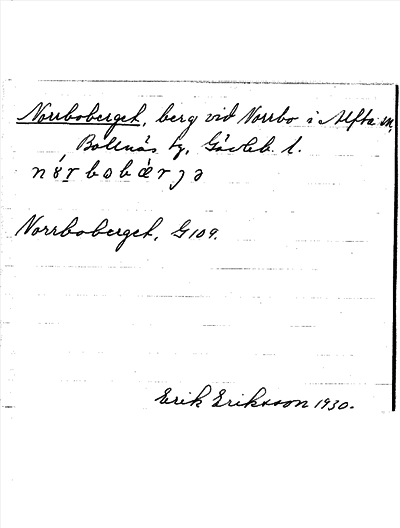 Norrboberget, berg vid Norrbo i Alfta sn,
Bollnäs tg, Gävleb. l.
Norrboberget, G109.
Erik Eriksson 1930.